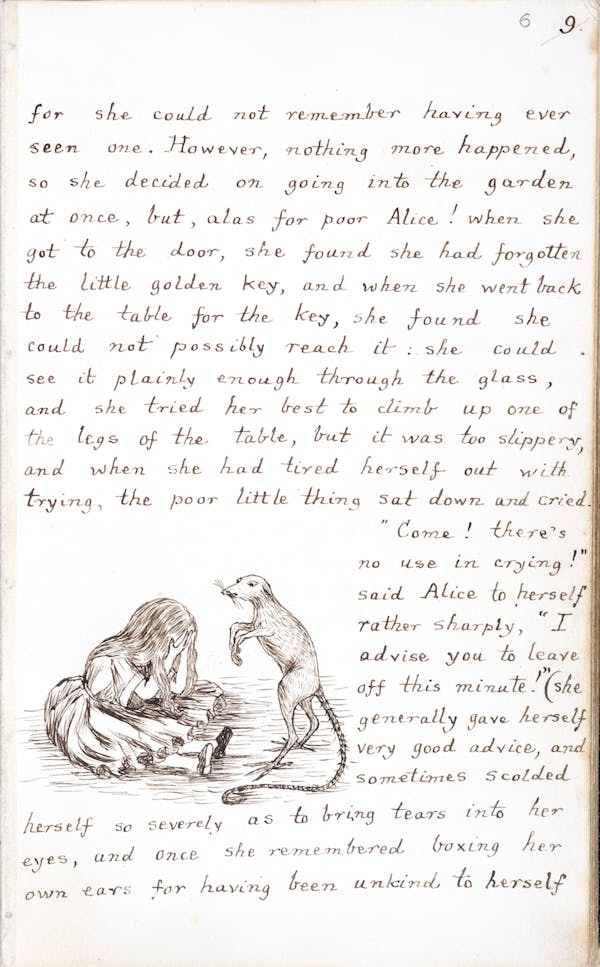 6 9.
for she could not remember having ever
seen one. However, nothing more happened,
so she decided on going into the garden
at once, but, alas for poor Alice! when she
got to the door, she found she had forgotten
the little golden key, and when she went back
to the table for the key, she found she
could not possibly reach it: she could
see it plainly enough through the glass,
and she tried her best to climb up one of
the legs of the table, but it was too slippery,
and when she had tired herself out with
trying, the poor little thing sat down and cried.
"Come! there's
no use in crying!"
said Alice to herself
rather sharply, "I
advise you to leave
off this minute!" (she
generally gave herself
very good advice, and
sometimes scolded
herself so severely as to bring tears into her
eyes, and once she remembered boxing her
own ears for having been unkind to herself